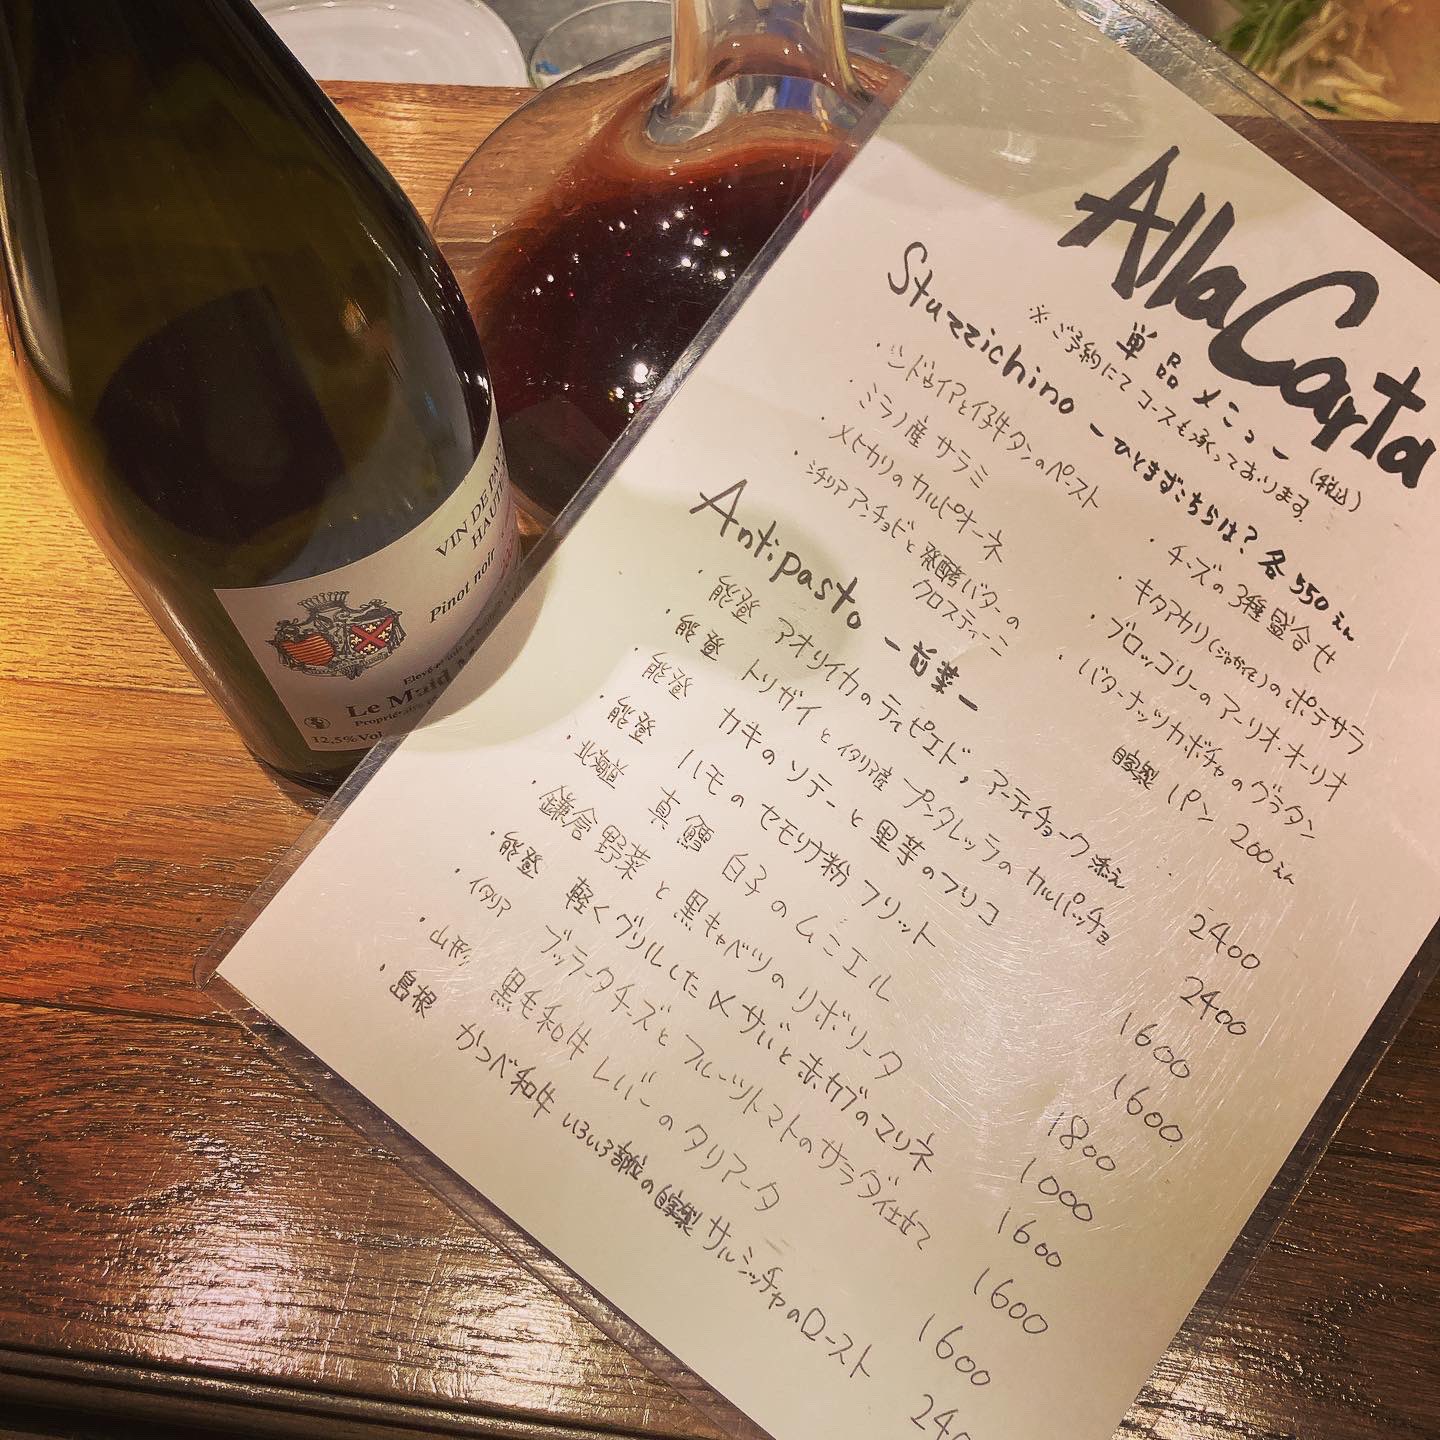 VIN DE PAY
HAUTE
Pinot noir
Le Maid
12,5%Vol
Alla Carta
単品メニュー (税込)
※ご予約にてコースも承っております。
Stuzzichino ーひとまずこちらは? 各550えん
・ンドゥイアと仔牛タンのペースト
・ミラノ産サラミ
・メヒカリのカルピオーネ
・シチリアアンチョビと発酵バターの
クロスティーニ
・チーズの3種盛合せ
・キタアカリ(ジャガイモ)のポテサラ
・ブロッコリーのアーリオ・オーリオ
・バターナッツカボチャのグラタン
自家製 パン 200えん
Antipasto ー前菜ー
・能登 アオリイカのティピエド, アーティチョーク添え 2400
・能登 トリガイとイタリア産プンタレッラのカルパッチョ 2400
・能登 カキのソテーと里芋のフリコ 1600
・能登 ハモのセモリナ粉フリット 1600
・北海道 真鱈 白子のムニエル 1800
・鎌倉野菜と黒キャベツのリボリータ 1000
・能登 軽くグリルした〆サバと赤カブのマリネ 1600
・イタリア ブッラータチーズとフルーツトマトのサラダ仕立て 1600
・山形 黒毛和牛レバーのタリアータ 1600
・島根 かつべ和牛 いろいろ部位の自家製サルシッチャのロースト 240